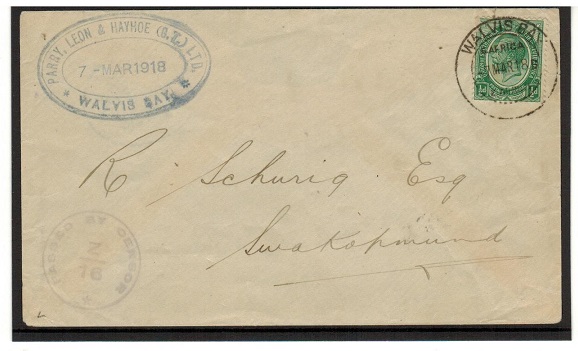 PARRY, LEON & HAYHOE (S.W.) LTD.
7 - MAR 1918
* WALVIS BAY. *
WALVIS BAY.
AFRICA
MAR 18
½d ½d
R. Schurig Esq
Swakopmund
PASSED BY CENSOR
Z
76
*